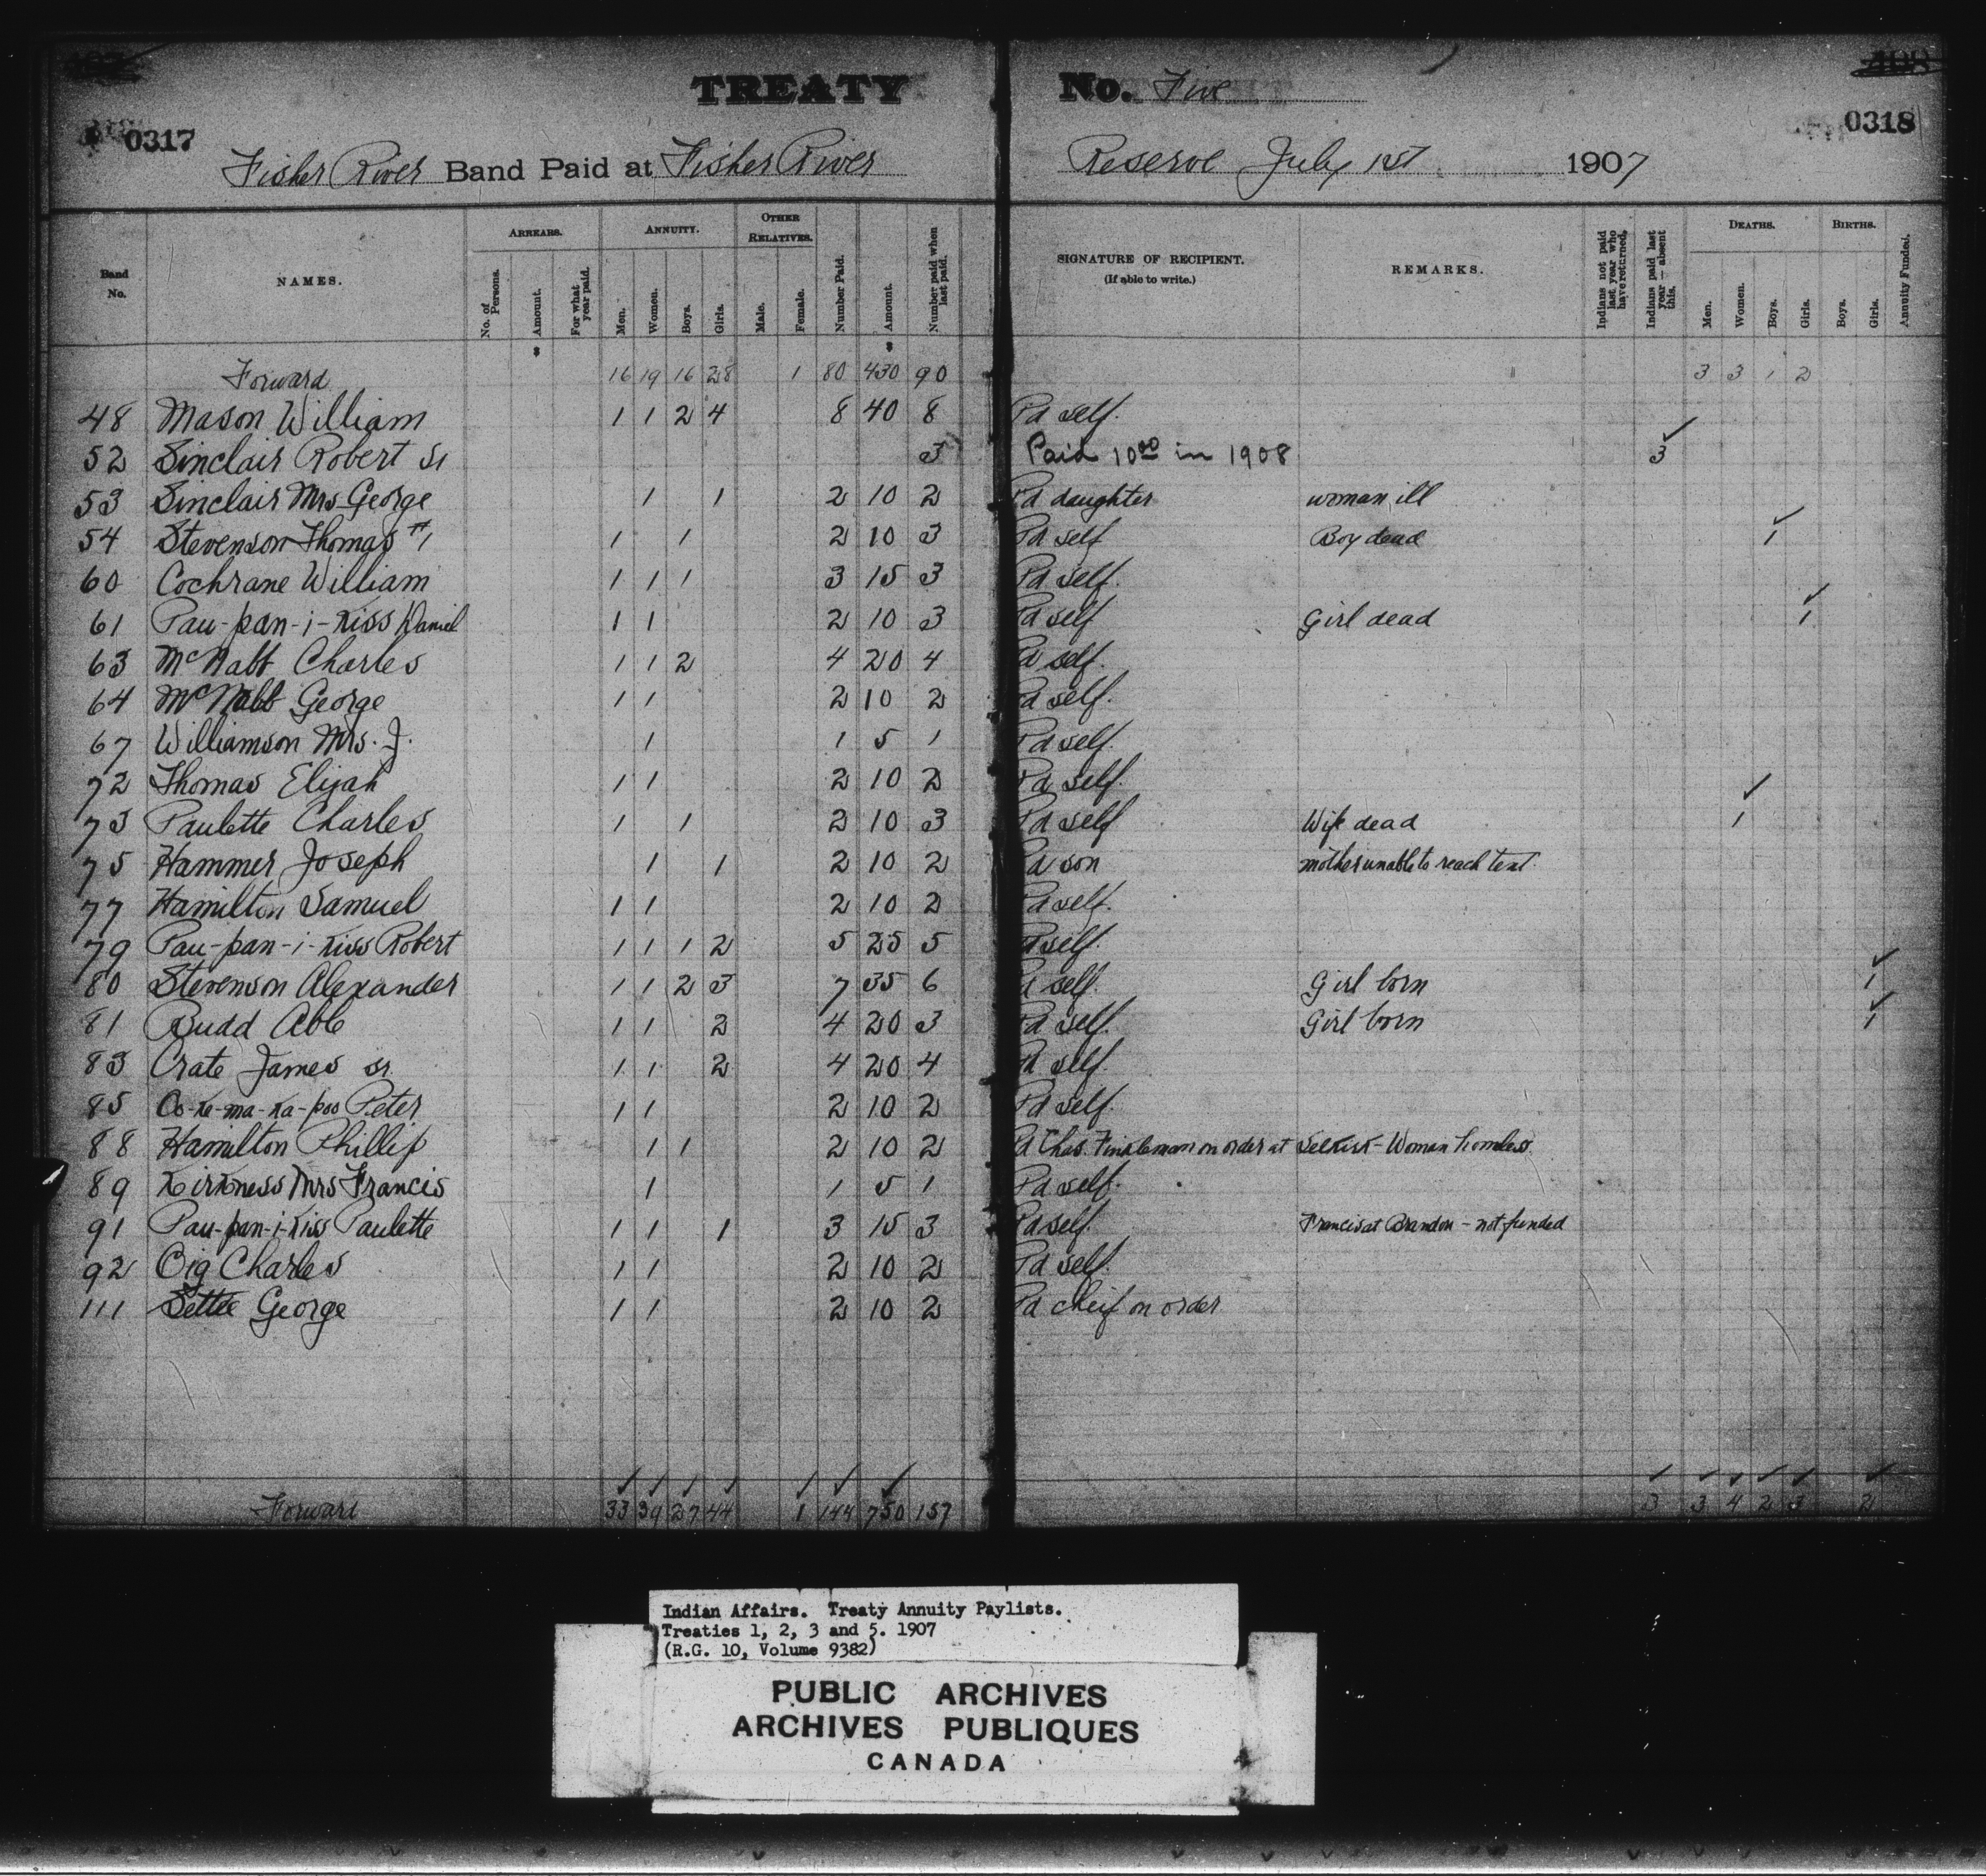 TREATY No. Five
0317 0318
Fisher River Band Paid at Fisher River Reserve July 1st 1907
Band No. NAMES. ARREARS. No. of Persons. Amount. For what year paid. ANNUITY. Men. Women. Boys. Girls. OTHER RELATIVES. Male. Female. Number Paid. Amount. Number paid when last paid. SIGNATURE OF RECIPIENT. (If able to write.) REMARKS. Indians not paid last year who have returned. Indians paid last year—absent this. DEATHS. Men. Women. Boys. Girls. BIRTHS. Boys. Girls. Annuity Funded.
$ $
Forward 16 19 16 28 1 80 430 90 3 3 1 2
48 Mason William 1 1 2 4 8 40 8 Pd self.
52 Sinclair Robert Sr 3 Paid 10.00 in 1908 3
53 Sinclair Mrs George 1 1 2 10 2 Pd daughter woman ill
54 Stevenson Thomas #1 1 1 2 10 3 Pd self Boy dead 1
60 Cochrane William 1 1 1 3 15 3 Pd self.
61 Pau-pan-i-Kiss Daniel 1 1 2 10 3 Pd self Girl dead 1
63 McNabb Charles 1 1 2 4 20 4 Pd self.
64 McNabb George 1 1 2 10 2 Pd self.
67 Williamson Mrs. J. 1 1 5 1 Pd self.
72 Thomas Elijah 1 1 2 10 2 Pd self.
73 Paulette Charles 1 1 2 10 3 Pd self Wife dead 1
75 Hammer Joseph 1 1 2 10 2 Pd son mother unable to reach tent.
77 Hamilton Samuel 1 1 2 10 2 Pd self.
79 Pau-pan-i-Kiss Robert 1 1 1 2 5 25 5 Pd self.
80 Stevenson Alexander 1 1 2 3 7 35 6 Pd self. Girl born 1
81 Budd Able 1 1 2 4 20 3 Pd self. Girl born 1
83 Crate James sr. 1 1 2 4 20 4 Pd self.
85 Co-Ke-ma-Ka-poo Peter 1 1 2 10 2 Pd self.
88 Hamilton Phillip 1 1 2 10 2 Pd Chas. Finkleman on order at Selkirk - Woman homeless.
89 Kirkness Mrs Francis 1 1 5 1 Pd self.
91 Pau-pan-i-Kiss Paulette 1 1 1 3 15 3 Pd self. Francis at Brandon - not funded
92 Oig Charles 1 1 2 10 2 Pd self.
111 Settee George 1 1 2 10 2 Pd cheif on order
Forward 33 39 27 44 1 144 750 157 3 3 4 2 3 2
Indian Affairs. Treaty Annuity Paylists.
Treaties 1, 2, 3 and 5. 1907
(R.G. 10, Volume 9382)
PUBLIC ARCHIVES
ARCHIVES PUBLIQUES
CANADA